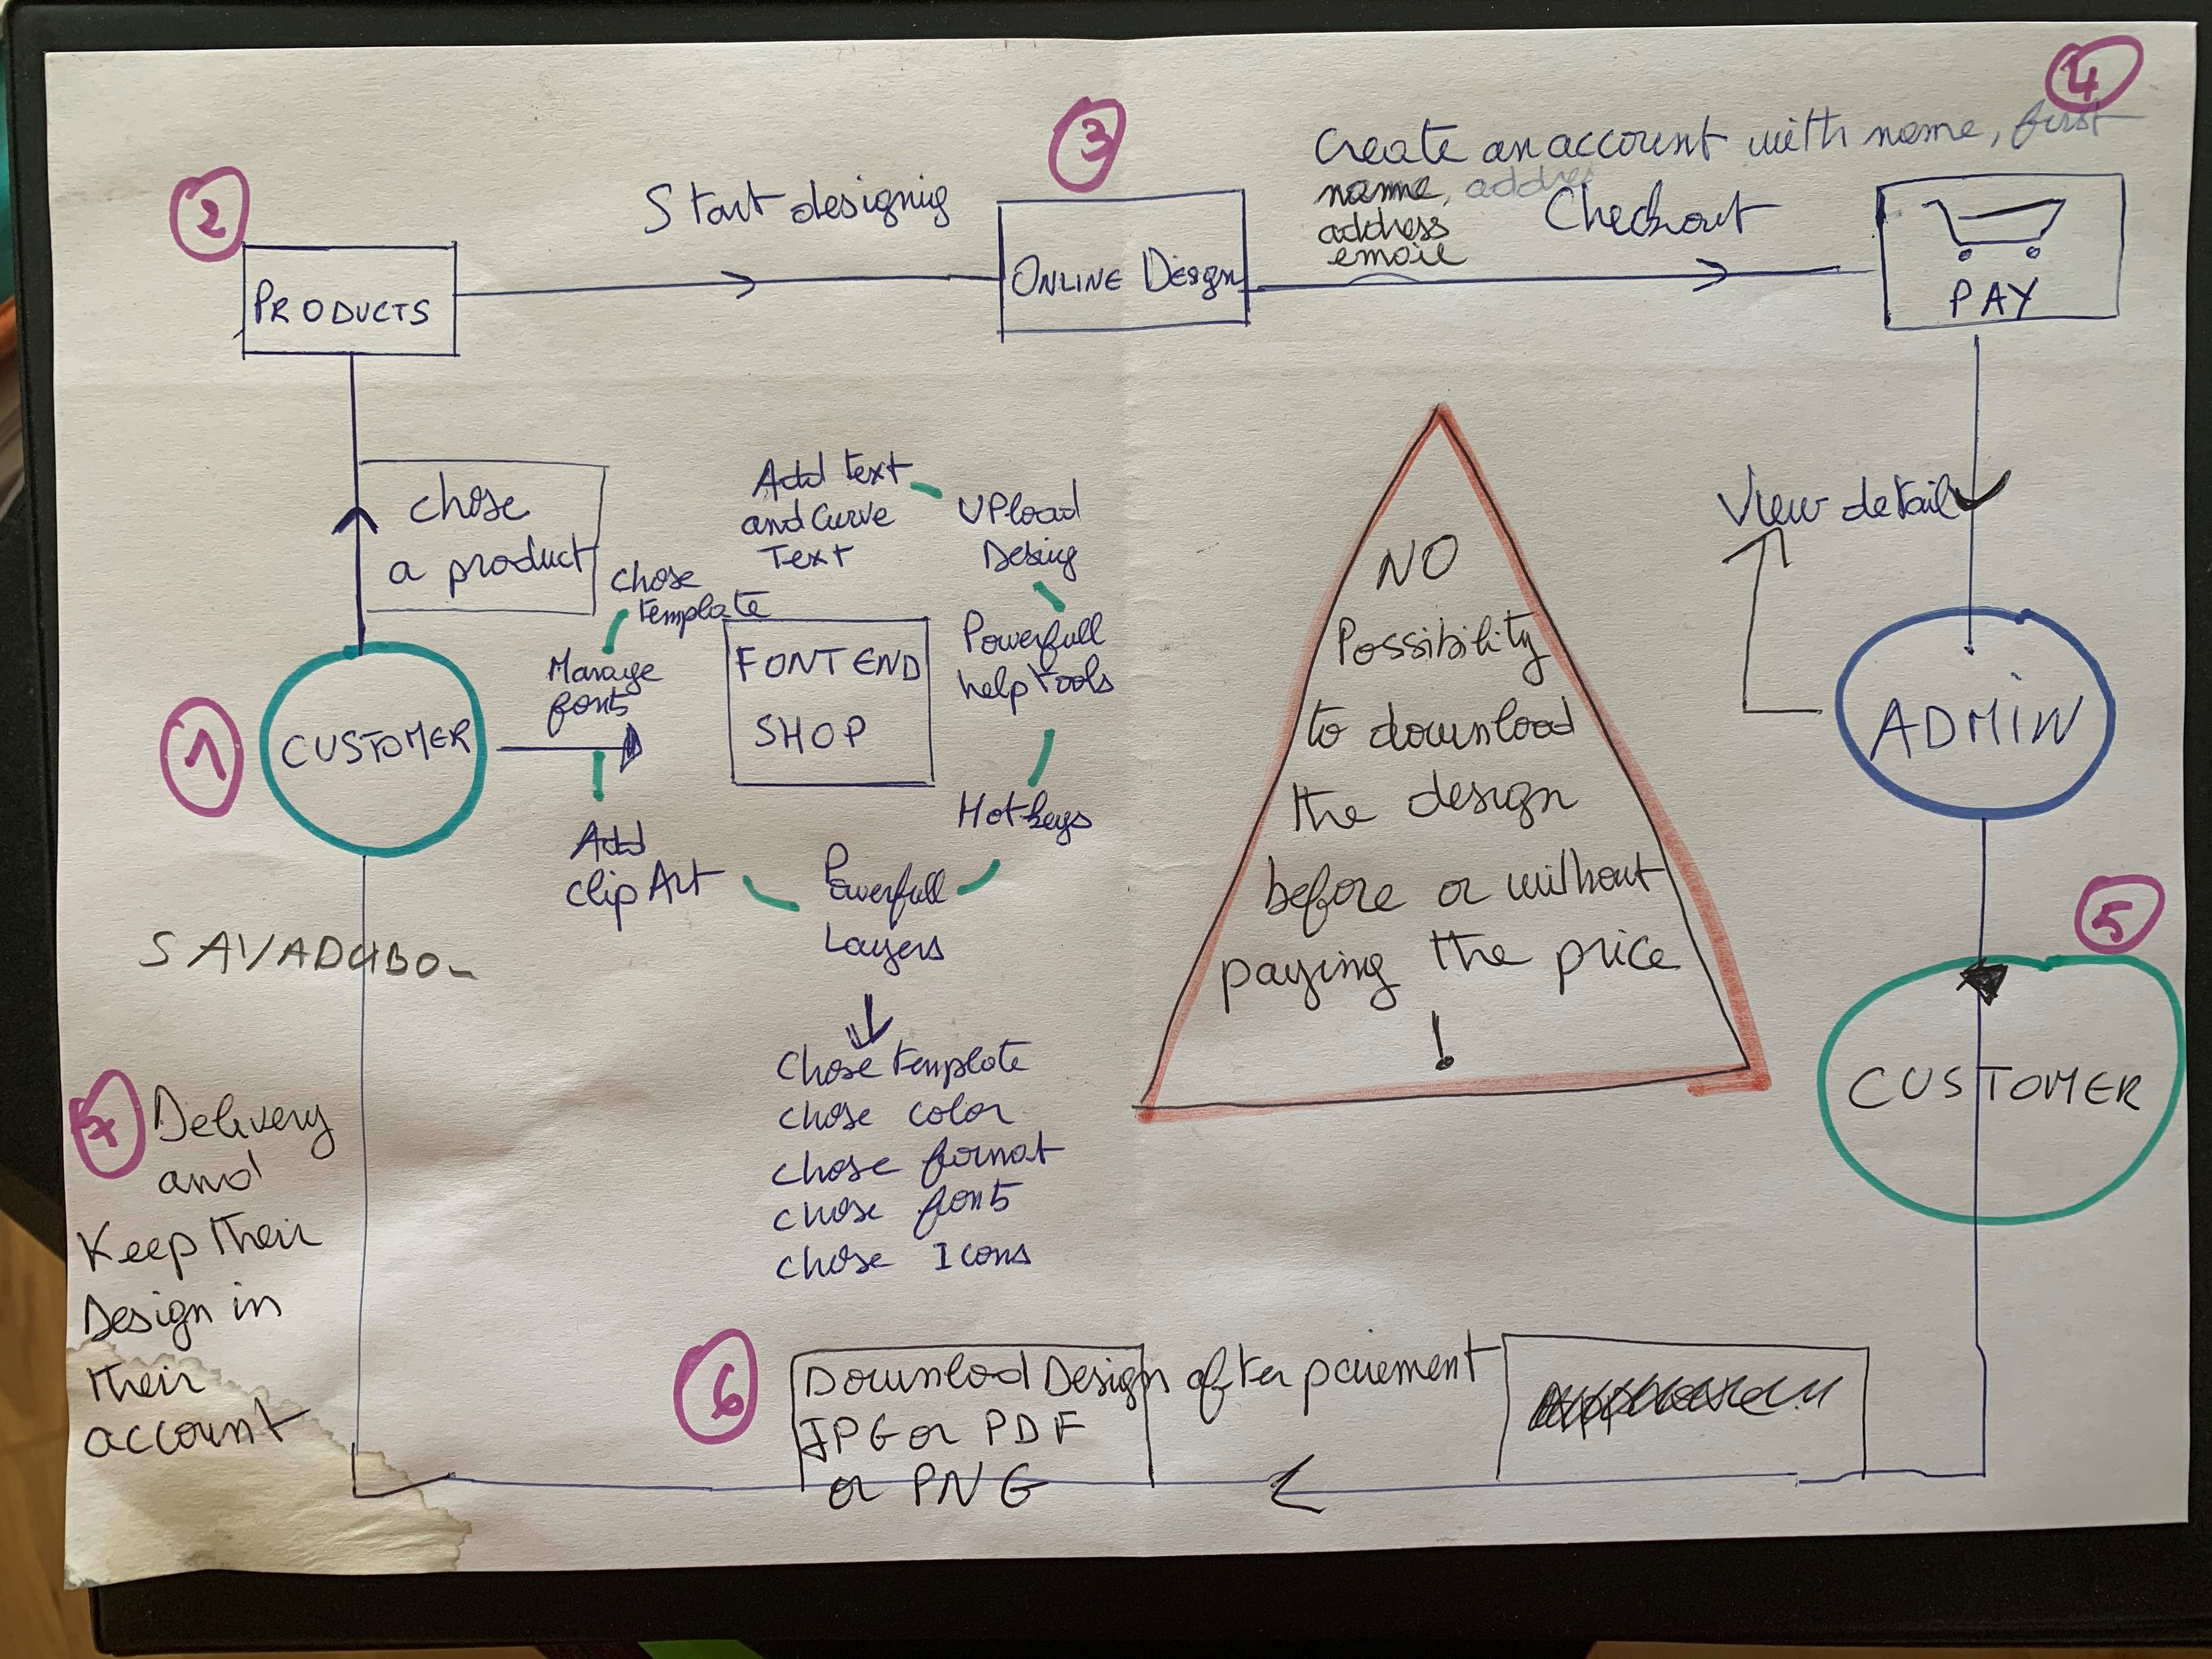 4
3
Create an account with name, first
name, addres
address
emaie
Checkout
2
Start designig
PRODUCTS
ONLINE Design
PAY
chose
a product
Add text
and Curve
Text
UPload
Desing
chose
template
Manage
fonts
FONT END
SHOP
Powerfull
help tools
Hotkeys
Powerfull
Layers
Add
clip Art
1
CUSTOMER
NO
Possibility
to download
the design
before or without
paying the price
!
View detail
ADMIN
5
CUSTOMER
Chose template
chose color
chose format
chose fonts
chose Icons
7
Delivery
and
Keep their
Design in
their
account
6
Downlod Design after paiement
JPG or PDF
or PNG